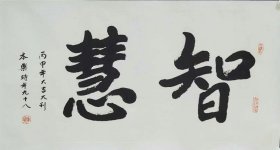 智慧
丙申年大吉大利
本樂時年九十八